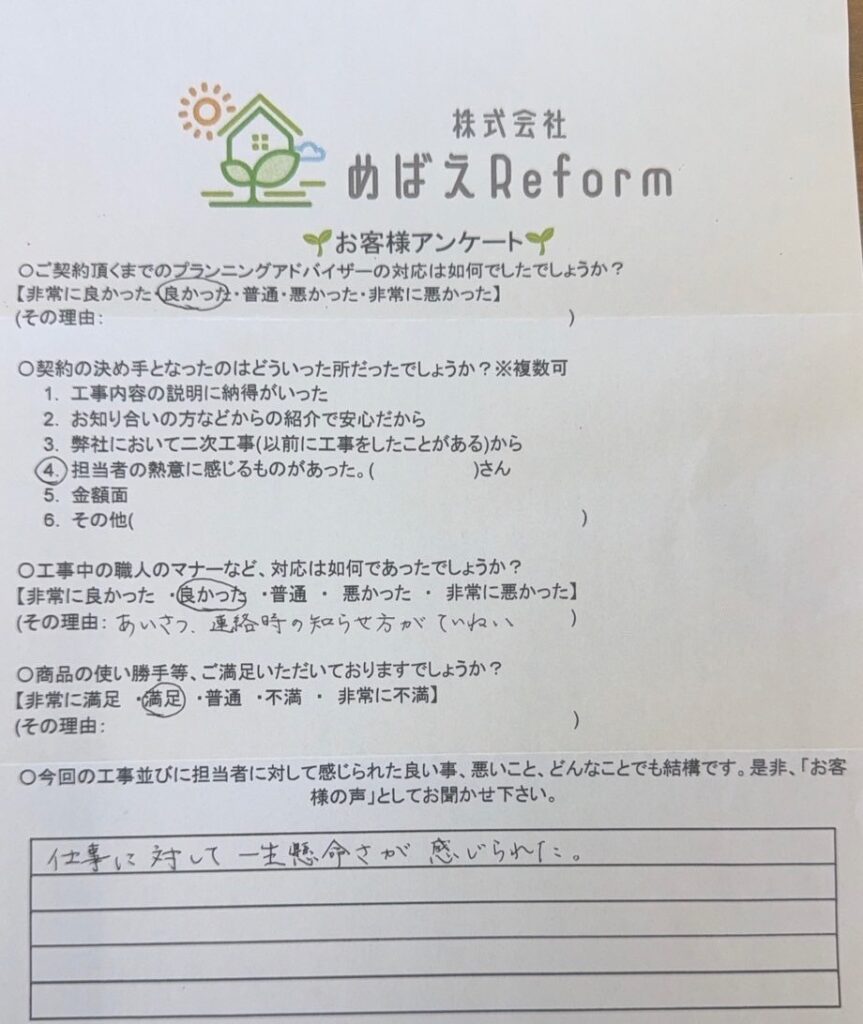 株式会社
めばえReform
お客様アンケート
○ご契約頂くまでのプランニングアドバイザーの対応は如何でしたでしょうか？
【非常に良かった・良かった・普通・悪かった・非常に悪かった】
(その理由: )
○契約の決め手となったのはどういった所だったでしょうか？※複数可
1. 工事内容の説明に納得がいった
2. お知り合いの方などからの紹介で安心だから
3. 弊社において二次工事(以前に工事をしたことがある)から
4. 担当者の熱意に感じるものがあった。( )さん
5. 金額面
6. その他( )
○工事中の職人のマナーなど、対応は如何であったでしょうか？
【非常に良かった ・良かった ・普通 ・ 悪かった ・ 非常に悪かった】
(その理由: あいさつ、連絡時の知らせ方がていねい )
○商品の使い勝手等、ご満足いただいておりますでしょうか？
【非常に満足 ・満足 ・普通 ・不満 ・ 非常に不満】
(その理由: )
○今回の工事並びに担当者に対して感じられた良い事、悪いこと、どんなことでも結構です。是非、「お客
様の声」としてお聞かせ下さい。
仕事に対して一生懸命さが感じられた。